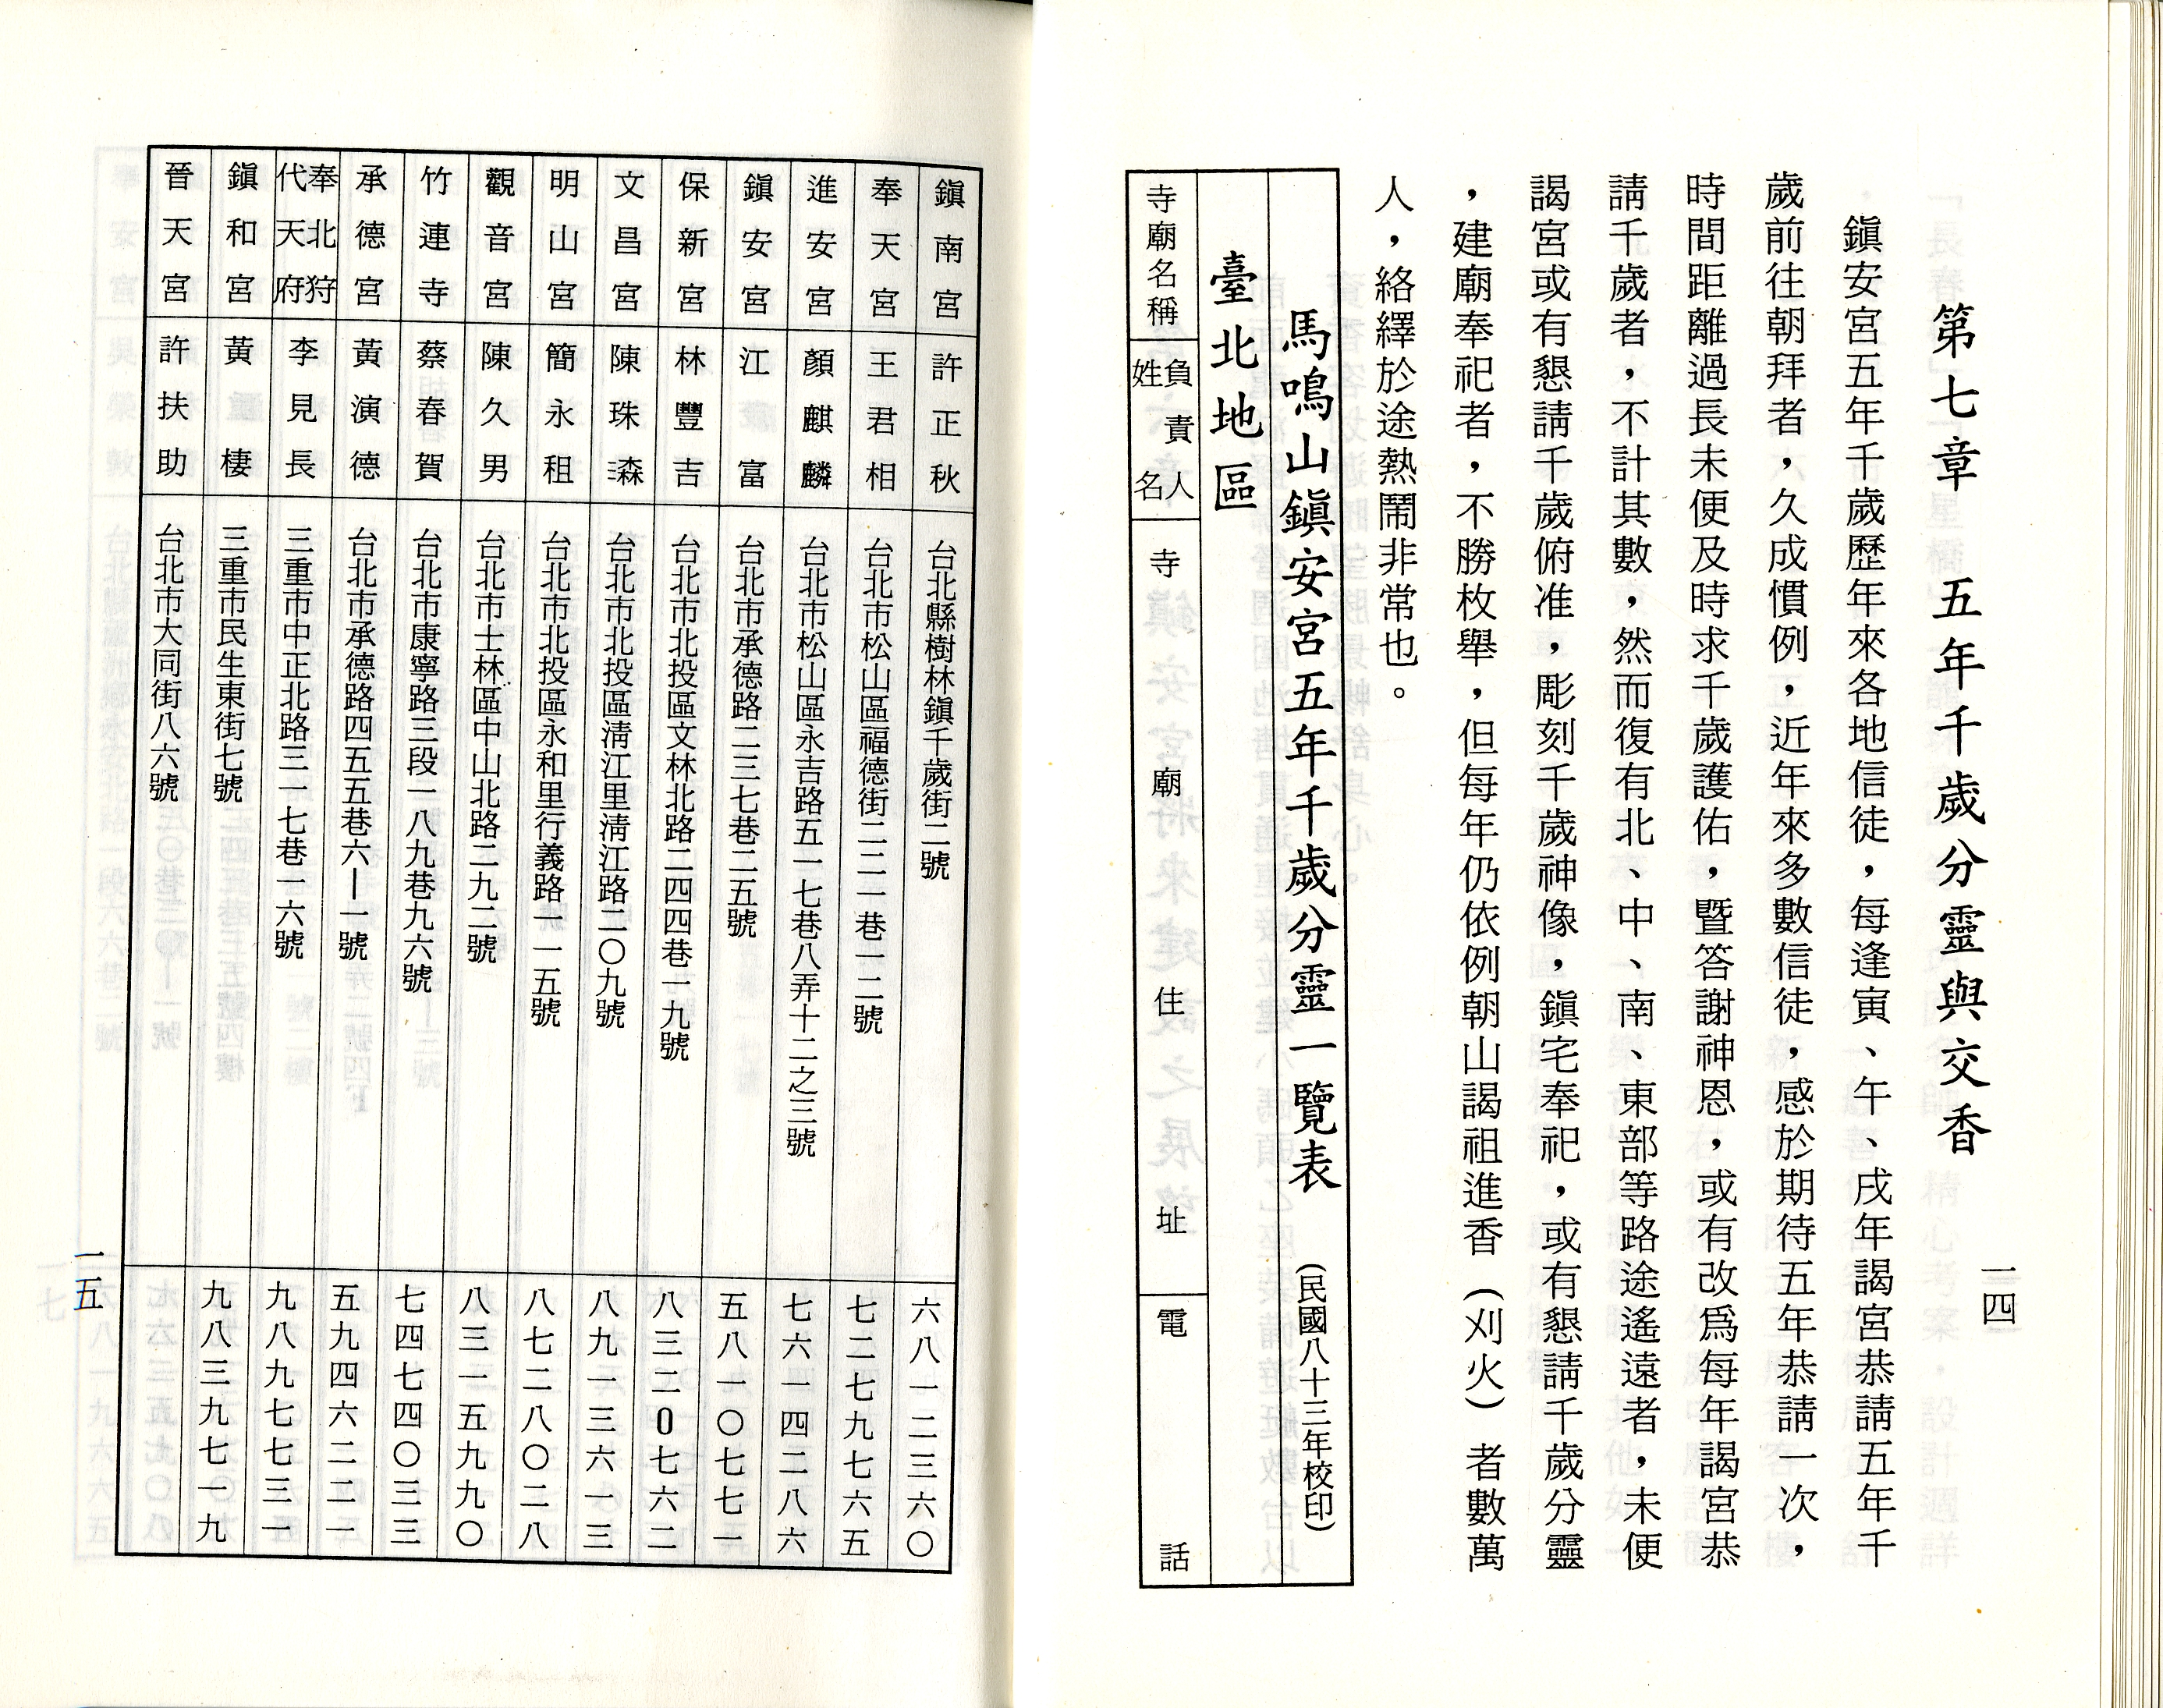 一四
第七章　五年千歲分靈與交香
鎮安宮五年千歲歷年來各地信徒，每逢寅、午、戌年謁宮恭請五年千
歲前往朝拜者，久成慣例，近年來多數信徒，感於期待五年恭請一次，
時間距離過長未便及時求千歲護佑，暨答謝神恩，或有改為每年謁宮恭
請千歲者，不計其數，然而復有北、中、南、東部等路途遙遠者，未便
謁宮或有懇請千歲俯准，彫刻千歲神像，鎮宅奉祀，或有懇請千歲分靈
，建廟奉祀者，不勝枚舉，但每年仍依例朝山謁祖進香（刈火）者數萬
人，絡繹於途熱鬧非常也。
馬鳴山鎮安宮五年千歲分靈一覽表（民國八十三年校印）
臺北地區
寺廟名稱　負責人姓名　寺廟住址　電話
鎮南宮　許正秋　台北縣樹林鎮千歲街二號　六八一二三六〇
奉天宮　王君相　台北市松山區福德街二二一巷一二號　七二七九七六五
進安宮　顏麒麟　台北市松山區永吉路五一七巷八弄十二之三號　七六一四二八六
鎮安宮　江富　台北市承德路二三七巷二五號　五八一〇七七一
保新宮　林豐吉　台北市北投區文林北路二四四巷一九號　八三二0七六二
文昌宮　陳珠森　台北市北投區清江里清江路二〇九號　八九一三六一三
明山宮　簡永租　台北市北投區永和里行義路一一五號　八七二八〇二八
觀音宮　陳久男　台北市士林區中山北路二九二號　八三一五九九〇
竹連寺　蔡春賀　台北市康寧路三段一八九巷九六號　七四七四〇三三
承德宮　黃演德　台北市承德路四五五巷六｜一號　五九四六二二一
奉北狩代天府　李見長　三重市中正北路三一七巷一六號　九八九七七三一
鎮和宮　黃棲　三重市民生東街七號　九八三九七一九
晉天宮　許扶助　台北市大同街八六號
一五